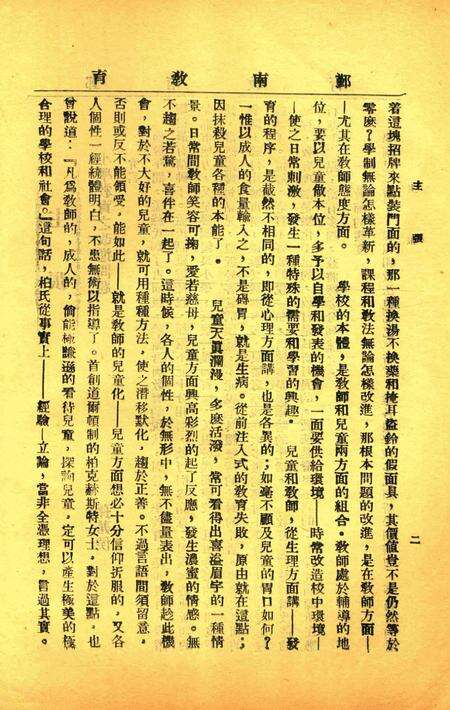 鄞南教育
主張
二
若這塊招牌來點裝門面的，那一種換湯不換藥和掩耳盜鈴的假面具，其價値豈不是仍然等於
零麽？學制無論怎樣革新，課程和敎法無論怎樣改進，那根本問題的改進，是在敎師方面—
—尤其在敎師態度方面。　學校的本體，是敎師和兒童兩方面的組合。敎師處於輔導的地
位，要以兒童做本位，多予以自學和發表的機會，一面要供給環境——時常改造校中環境—
—使之日常刺激，發生一種特殊的需要和學習的興趣。　兒童和敎師，從生理方面講——發
育的程序，是截然不相同的，卽從心理方面講，也是各異的；如毫不顧及兒童的胃口如何？
一惟以成人的食量輸入之，不是礙胃，就是生病。從前注入式的敎育失敗，原由就在這點；
因抹殺兒童各種的本能了。　兒童天眞瀾漫，多麽活潑，常可看得出喜溢眉宇的一種情
景。日常間敎師笑容可掬，愛若慈母，兒童方面興高彩烈的起了反應，發生濃蜜的情感。無
不趨之若鶩，喜作在一起了。這時候，各人的個性，於無形中，無不儘量表出，敎師趁此機
會，對於不大好的兒童，就可用種種方法，使之潛移默化，趨於正善。不過言語間須留意。
否則或反不能領受，能如此——就是敎師的兒童化——兒童方面想必十分信仰折服的，又各
人個性一經統體明白，不患無術以指導了。首創道爾頓制的柏克赫斯特女士。對於這點，也
曾說道：『凡爲敎師的，成人的，倘能極謙遜的看待兒童，探詢兒童，定可以產生極美的極
合理的學校和社會。』這句話，柏氏從事實上——經驗——立論，當非全憑理想，言過其實。